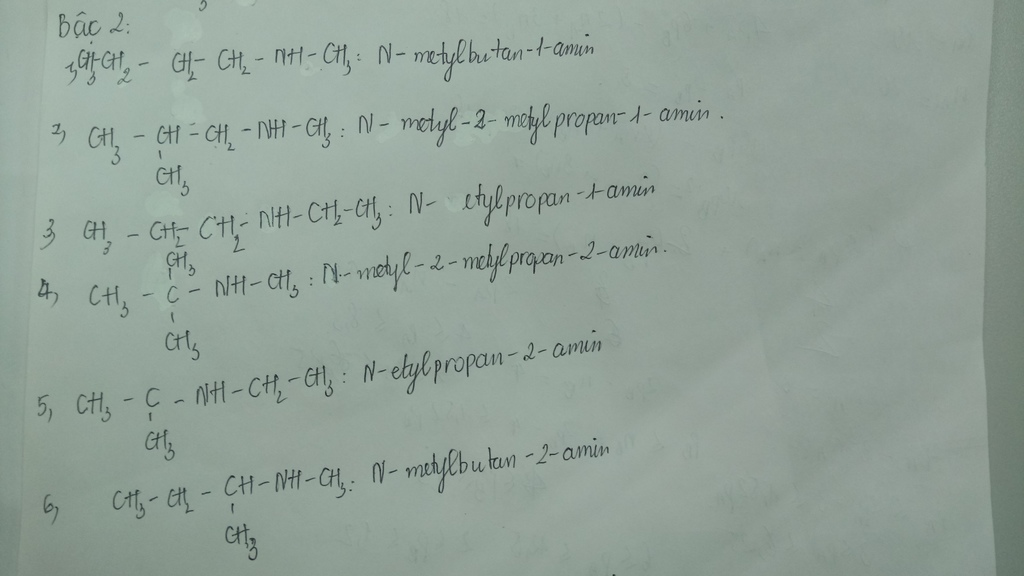 Bậc 2:
1, CH3-CH2 - CH2 - CH2 - NH - CH3: N - metylbutan-1-amin
2, CH3 - CH - CH2 - NH - CH3: N - metyl-2-metylpropan-1-amin.
CH3
3, CH3 - CH2 - CH2 - NH - CH2 - CH3: N - etylpropan-1-amin
CH3
4, CH3 - C - NH - CH3: N-metyl-2-metylpropan-2-amin.
CH3
5, CH3 - C - NH - CH2 - CH3: N-etylpropan-2-amin
CH3
6, CH3 - CH2 - CH - NH - CH3: N-metylbutan-2-amin
CH3